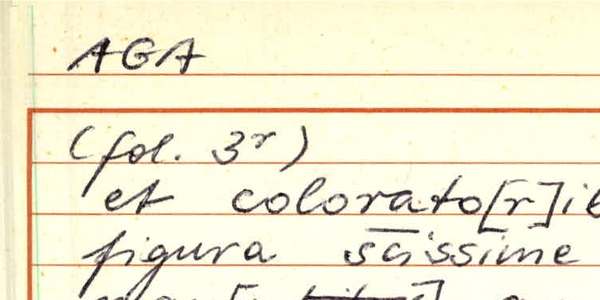 AGA
(fol. 3ʳ)
et colorato[r]ib
figura sc̅issime